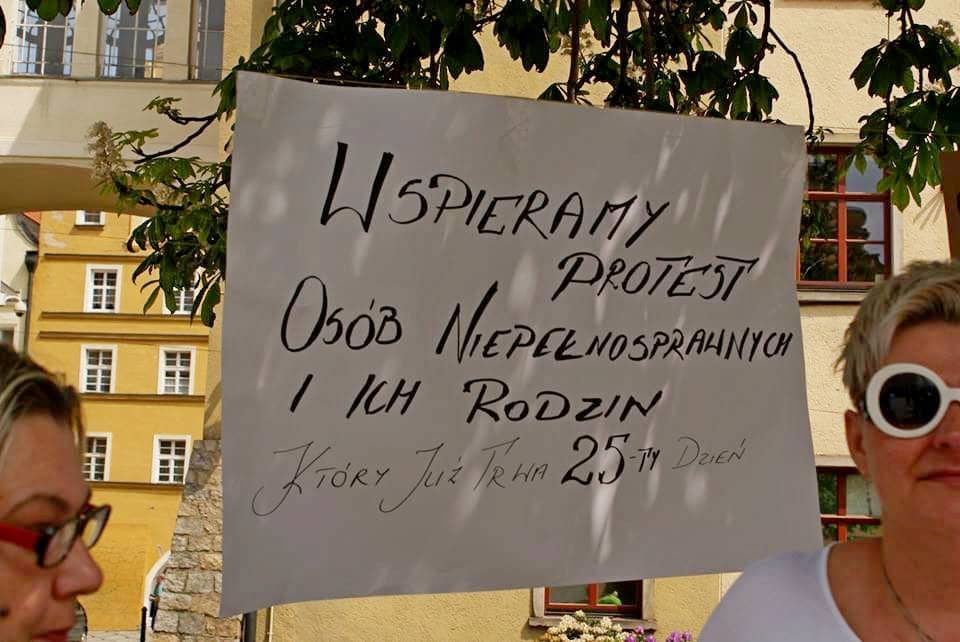 WSPIERAMY
PROTEST
OSÓB NIEPEŁNOSPRAWNYCH
I ICH RODZIN
KTÓRY JUŻ TRWA 25-TY DZIEŃ